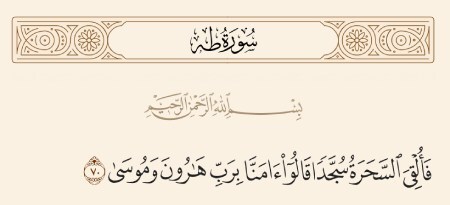 سُورَةُ طه
بِسْمِ اللَّهِ الرَّحْمَٰنِ الرَّحِيمِ
فَأُلْقِيَ ٱلسَّحَرَةُ سُجَّدًا قَالُوٓا۟ ءَامَنَّا بِرَبِّ هَٰرُونَ وَمُوسَىٰ ٧٠